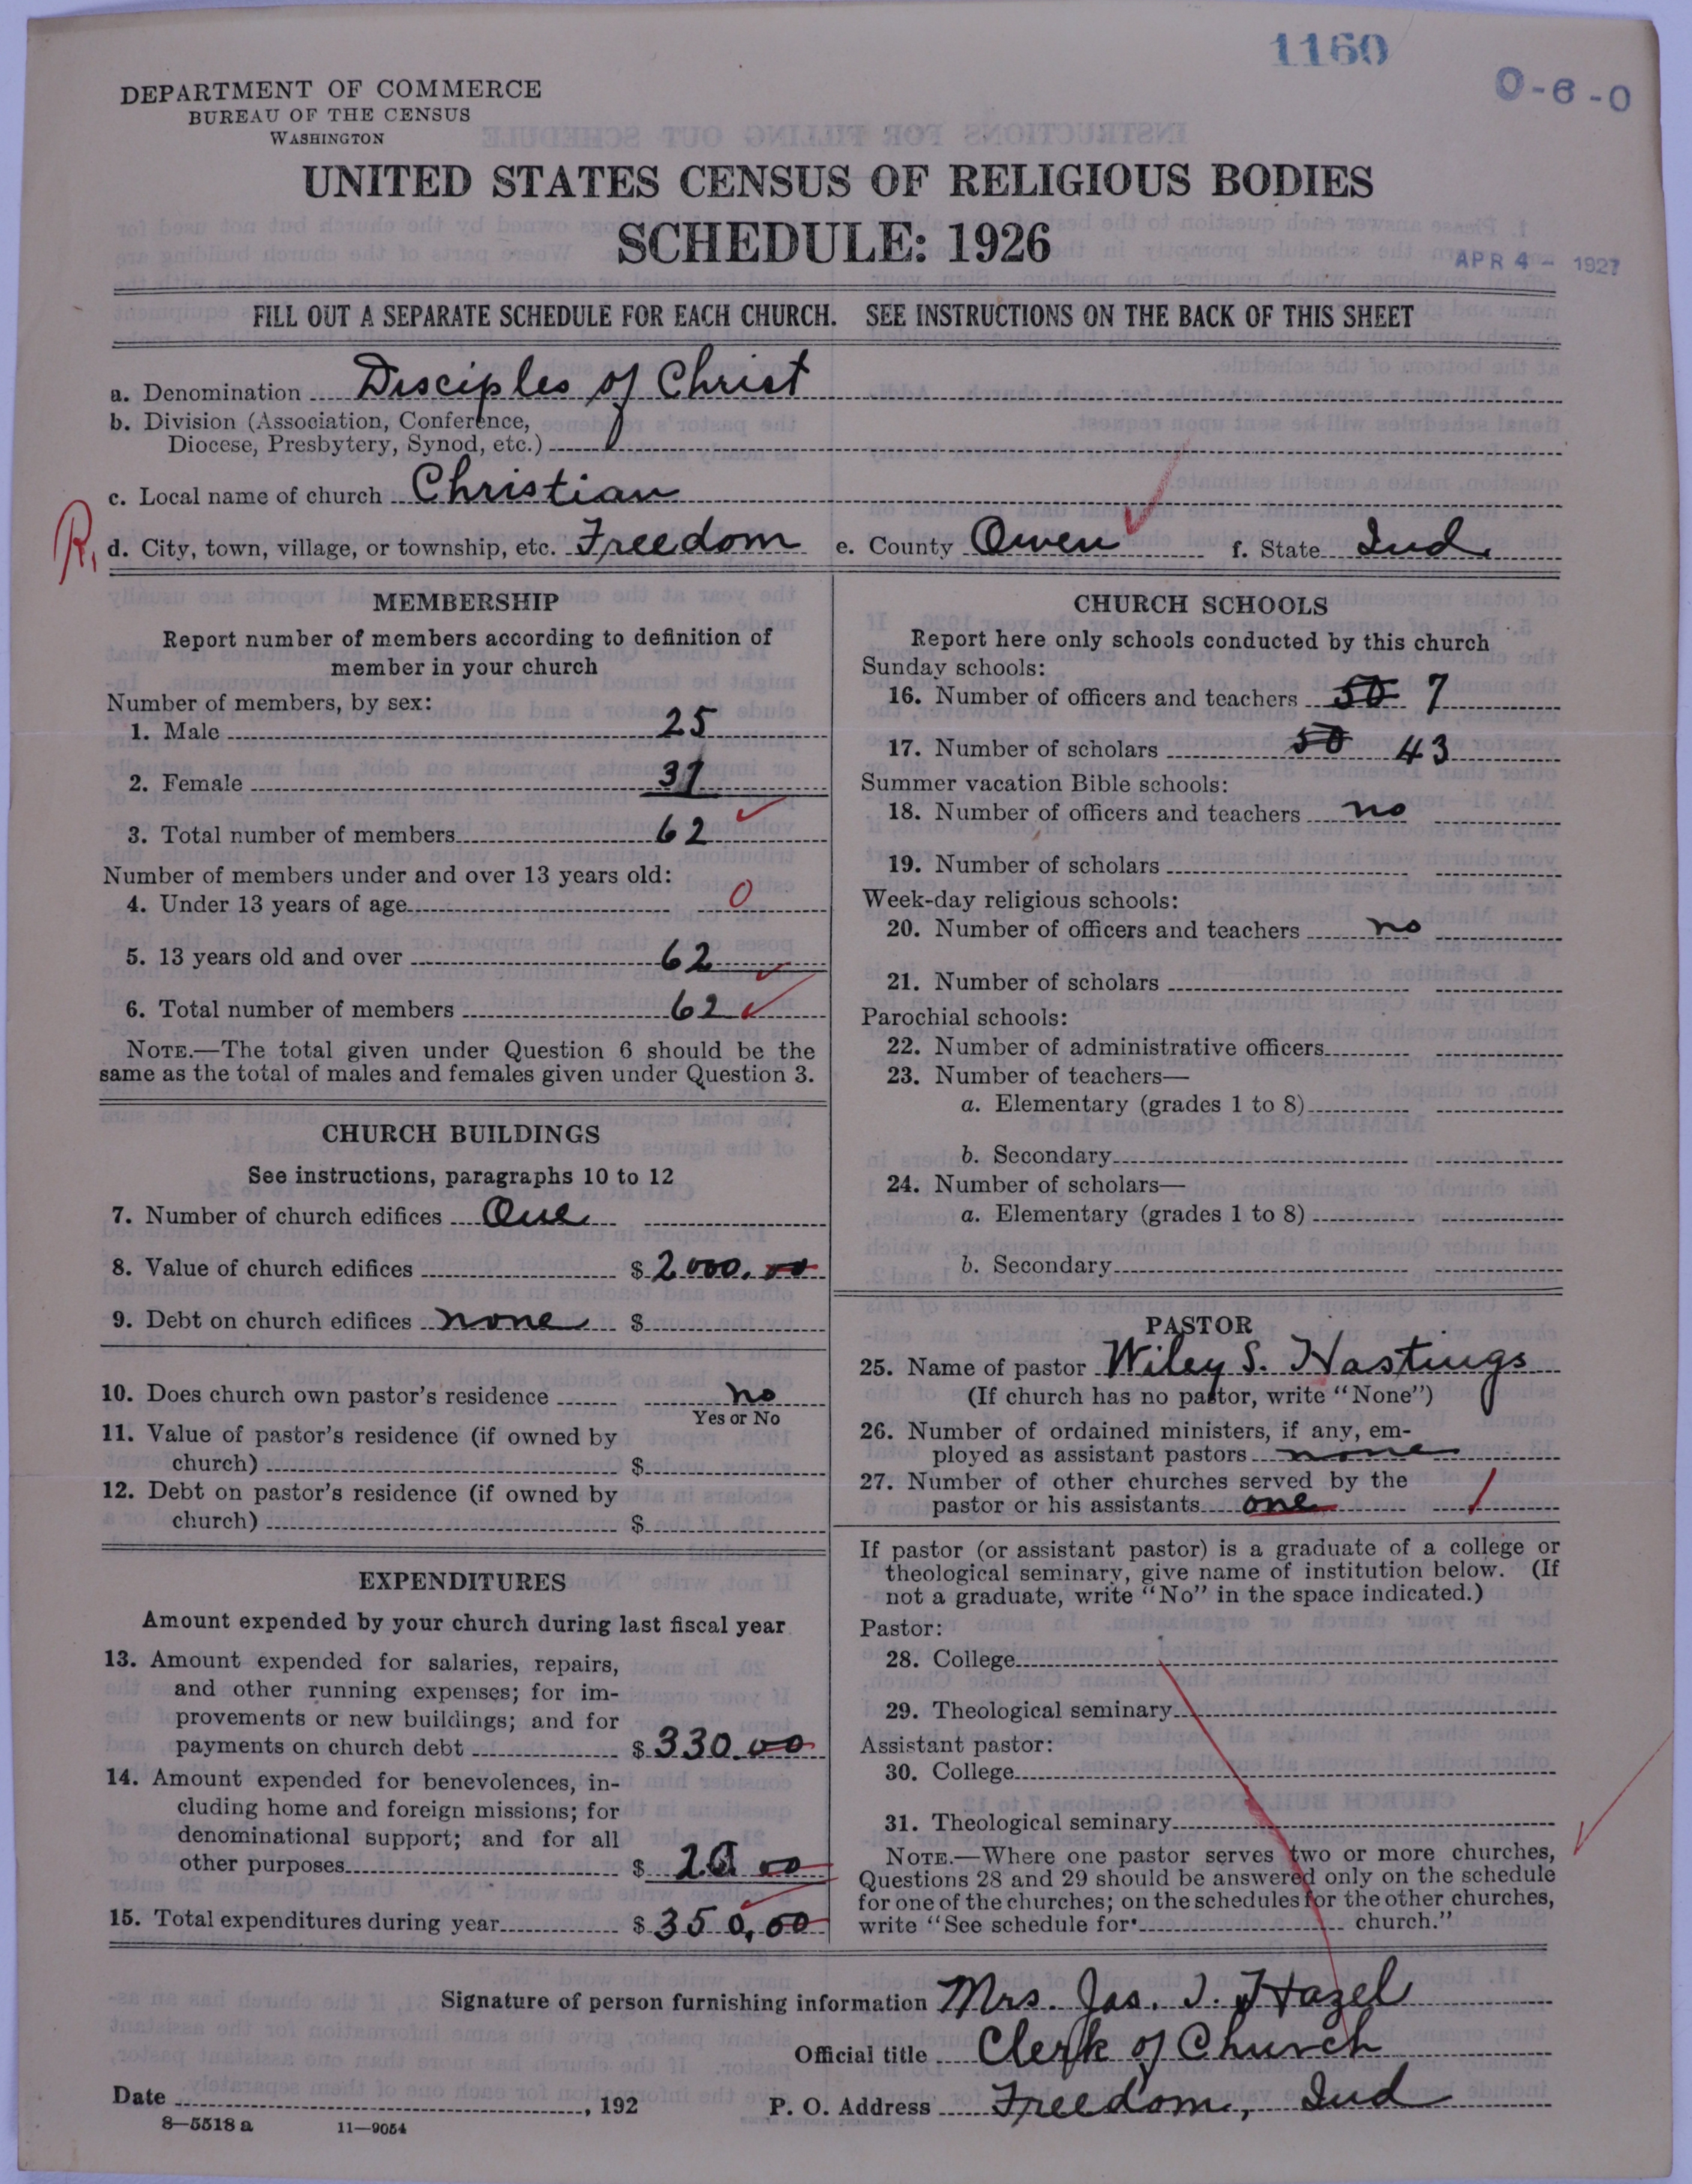 1160
0-6-0
DEPARTMENT OF COMMERCE
BUREAU OF THE CENSUS
WASHINGTON
UNITED STATES CENSUS OF RELIGIOUS BODIES
SCHEDULE: 1926
APR 4 - 1927
FILL OUT A SEPARATE SCHEDULE FOR EACH CHURCH. SEE INSTRUCTIONS ON THE BACK OF THIS SHEET
a. Denomination Disciples of Christ
b. Division (Association, Conference,
Diocese, Presbytery, Synod, etc.)
c. Local name of church Christian
R. d. City, town, village, or township, etc. Freedom e. County Owen f. State Ind.
MEMBERSHIP
Report number of members according to definition of
member in your church
Number of members, by sex:
1. Male 25
2. Female 37
3. Total number of members 62
Number of members under and over 13 years old:
4. Under 13 years of age 0
5. 13 years old and over 62
6. Total number of members 62
NOTE.—The total given under Question 6 should be the
same as the total of males and females given under Question 3.
CHURCH BUILDINGS
See instructions, paragraphs 10 to 12
7. Number of church edifices One
8. Value of church edifices $ 2000.00
9. Debt on church edifices none $
10. Does church own pastor's residence no
Yes or No
11. Value of pastor's residence (if owned by
church) $
12. Debt on pastor's residence (if owned by
church) $
EXPENDITURES
Amount expended by your church during last fiscal year
13. Amount expended for salaries, repairs,
and other running expenses; for im-
provements or new buildings; and for
payments on church debt $ 330.00
14. Amount expended for benevolences, in-
cluding home and foreign missions; for
denominational support; and for all
other purposes $ 20 00
15. Total expenditures during year $ 350.00
CHURCH SCHOOLS
Report here only schools conducted by this church
Sunday schools:
16. Number of officers and teachers 50 7
17. Number of scholars 50 43
Summer vacation Bible schools:
18. Number of officers and teachers no
19. Number of scholars
Week-day religious schools:
20. Number of officers and teachers no
21. Number of scholars
Parochial schools:
22. Number of administrative officers
23. Number of teachers—
a. Elementary (grades 1 to 8)
b. Secondary
24. Number of scholars—
a. Elementary (grades 1 to 8)
b. Secondary
PASTOR
25. Name of pastor Wiley S. Hastings
(If church has no pastor, write "None")
26. Number of ordained ministers, if any, em-
ployed as assistant pastors none
27. Number of other churches served by the
pastor or his assistants one 1
If pastor (or assistant pastor) is a graduate of a college or
theological seminary, give name of institution below. (If
not a graduate, write "No" in the space indicated.)
Pastor:
28. College
29. Theological seminary
Assistant pastor:
30. College
31. Theological seminary
NOTE.—Where one pastor serves two or more churches,
Questions 28 and 29 should be answered only on the schedule
for one of the churches; on the schedules for the other churches,
write "See schedule for church."
Signature of person furnishing information Mrs. Jas. I. Hazel
Official title Clerk of Church
Date , 192 P. O. Address Freedom, Ind
8—5518 a 11—9054